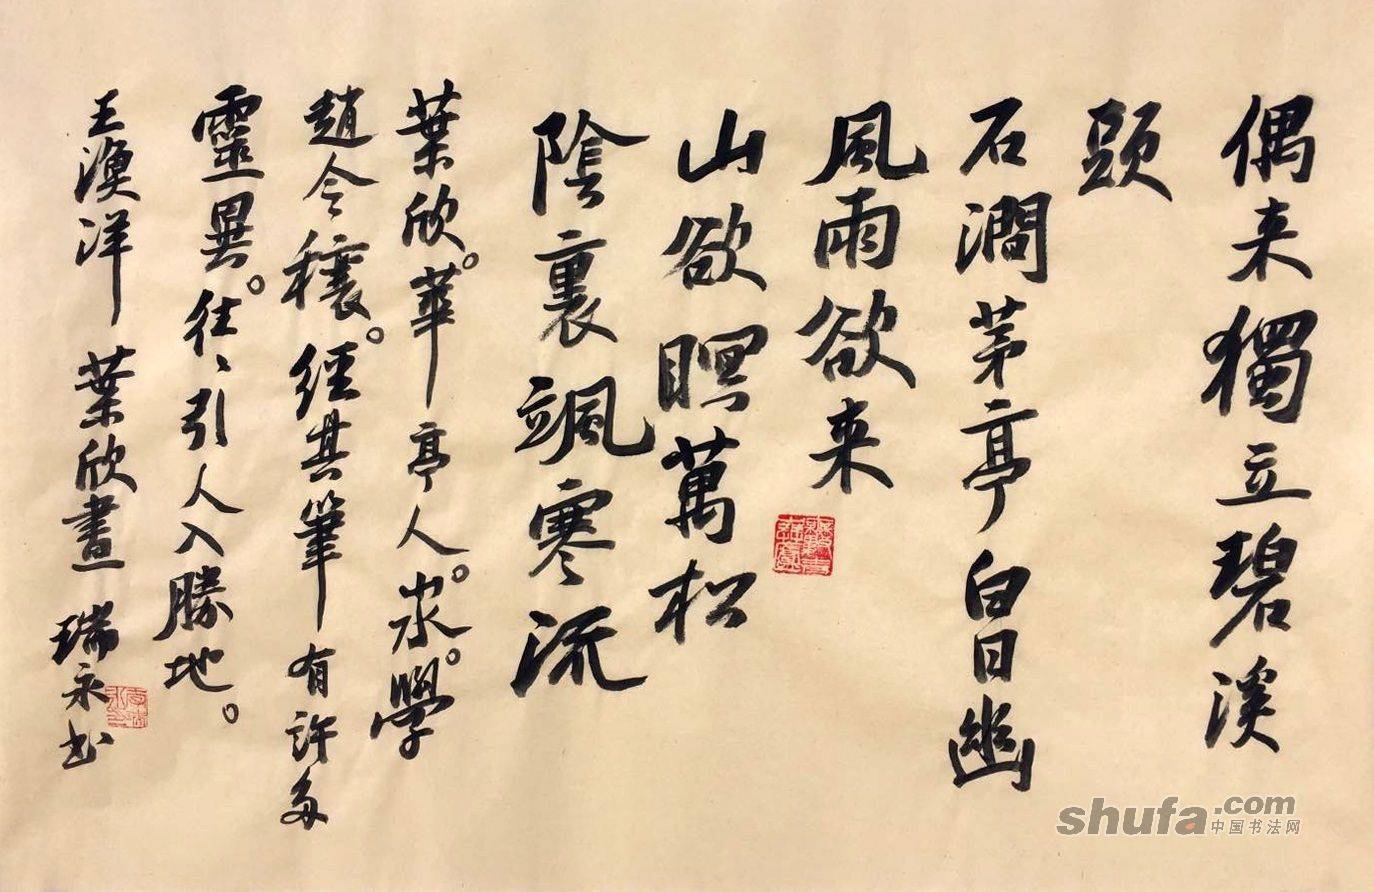 偶来獨立碧溪
頭
石澗茅亭白日幽
風雨欲来
山欲暝萬松
陰裏颯寒流
葉欣。華亭人。學
趙令穰。經其筆有許多
靈異。往〻引人入勝地。
王漁洋 葉欣畫 瑞永书
shufa.com
中国书法网